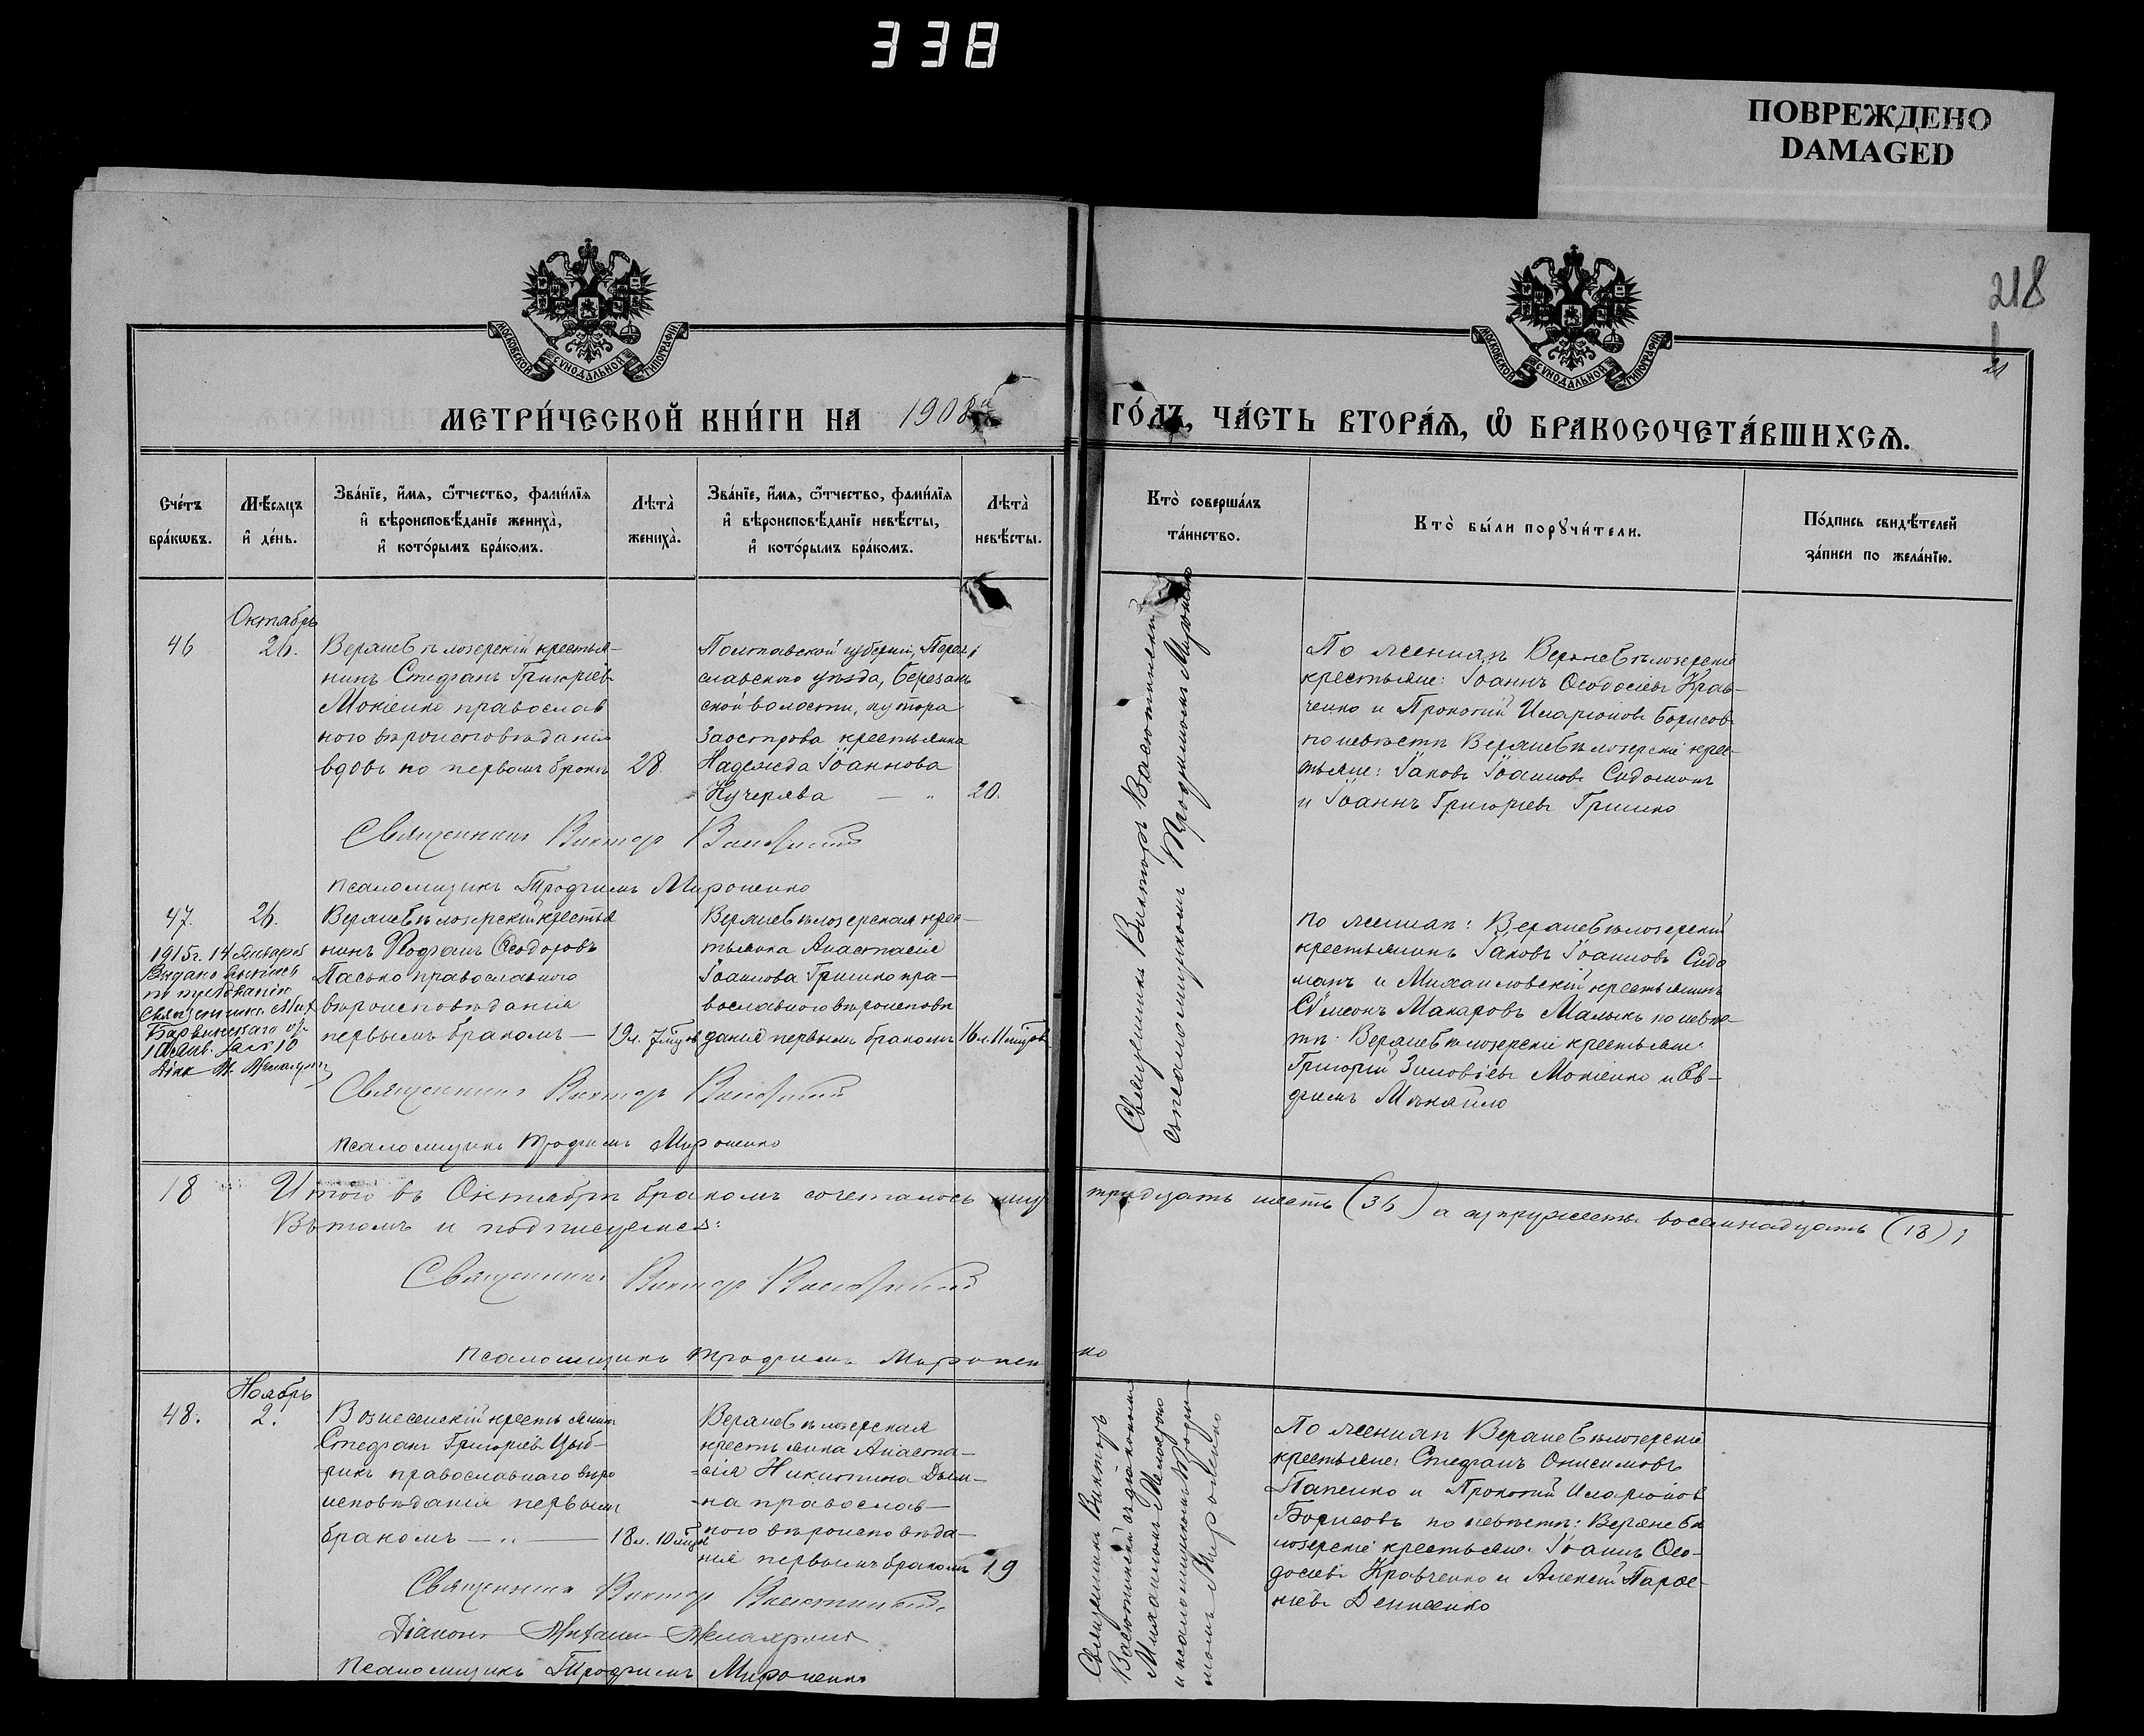 338
ПОВРЕЖДЕНО
DAMAGED
218
МОСКОВСКОЙ СУНОДАЛЬНОЙ ТИПОГРАФІИ
МОСКОВСКОЙ СУНОДАЛЬНОЙ ТИПОГРАФІИ
МЕТРИ́ЧЕСКОЙ КНИ́ГИ НА 1908й ГО́ДЪ, ЧА́СТЬ ВТОРА́Я, Ѡ҆ БРАКОСОЧЕТА́ВШИХСЯ.
Сче́тъ
бра́кѡвъ.
Мѣ́сяцъ
и҆ де́нь.
Зва́нїе, и҆́мя, ѻ҆́тчество, фами́лїя
и҆ вѣроисповѣ́данїе жениха̀,
и҆ кото́рымъ бра́комъ.
Лѣта̀
жениха̀.
Зва́нїе, и҆́мя, ѻ҆́тчество, фами́лїя
и҆ вѣроисповѣ́данїе невѣ́сты,
и҆ кото́рымъ бра́комъ.
Лѣта̀
невѣ́сты.
Кто̀ соверша́лъ
та́инство.
Кто̀ бы́ли порꙋчи́тели.
По́дпись свидѣ́телей
за́писи по жела́нїю.
Октябрь
46
26.
Верхнебѣлозерскій крестья-
нинъ Стефанъ Григоріевъ
православ
ного вѣроисповѣданія
вдовъ по первомъ бракѣ
28.
Полтавской губерніи, Перея
славского уѣзда, Березан
ской волости, хутора
крестьянка
Надежда Іоаннова
Кучерява — "
20.
Священникъ Викторъ Васютинскій
съ псаломщикомъ Трофимомъ Мироненко
По женихѣ Верхнебѣлозерскіе
крестьяне: Іоаннъ Ѳеодосіевъ Крав-
ченко и Прокопій Иларіоновъ Борисовъ
по невѣстѣ Верхнебѣлозерскіе крес-
тьяне: Іаковъ Іоанновъ
и Іоаннъ Григоріевъ Гришко
Священникъ Викторъ Васютинскій
Псаломщикъ Трофимъ Мироненко
47.
26.
1915г. 14 Января
Выдана
по требованію
Священника
Верхнебѣлозерскій крестья
нинъ Ѳеодоровъ
Пасько православного
вѣроисповѣданія
первымъ бракомъ —
19 л. 7 мѣс.
Верхнебѣлозерская крес-
тьянка Анастасія
Іоаннова Гришко пра-
вославного вѣроисповѣ
данія первымъ бракомъ
16 л. 11 мѣс.
по женихѣ: Верхнебѣлозерскій
крестьянинъ Іаковъ Іоанновъ
и Михайловскій крестьянинъ
Сѵмеонъ Макаровъ Малыкъ по невѣс-
тѣ: Верхнебѣлозерскіе крестьяне:
Григорій Зиновіевъ и Ев-
фимъ Михайло
Священникъ Викторъ Васютинскій
Псаломщикъ Трофимъ Мироненко
18
Итого въ Октябрѣ бракомъ сочеталось лицъ тридцать шесть (36) а супружествъ восемнадцать (18);
Въ томъ и подписуемся:
Священникъ Викторъ Васютинскій
Псаломщикъ Трофимъ Мироненко
Ноябрь
48.
2.
Вознесенскій крестьянинъ
Стефанъ Григоріевъ Цыб-
рикъ православнаго вѣро
исповѣданія первымъ
бракомъ — " —
18 л. 10 мѣс.
Верхнебѣлозерская
крестьянка Анаста-
сія Никитина
православ-
ного вѣроисповѣда-
нія первымъ бракомъ
19
Священникъ Викторъ
Васютинскій съ діакономъ
Михаиломъ
и псаломщикомъ Трофи-
момъ Мироненко
По женихѣ Верхнебѣлозерскіе
крестьяне: Стефанъ Онисимовъ
Папенко и Прокопій Иларіоновъ
Борисовъ по невѣстѣ: Верхнебѣ
лозерскіе крестьяне: Іоаннъ Ѳео-
досіевъ Кравченко и Алексій Парѳе-
ніевъ Денисенко
Священникъ Викторъ Васютинскій
Діаконъ Михаилъ
Псаломщикъ Трофимъ Мироненко